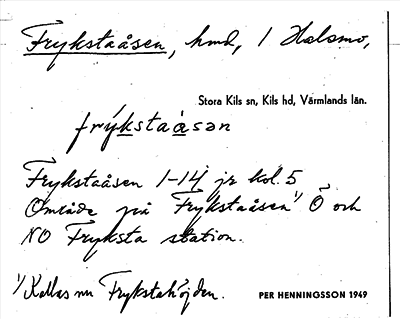 Frykstaåsen, hmd, / Halsmo,
Stora Kils sn, Kils hd, Värmlands län.
frýkstaåsən
Frykstaåsen 1-14 jr kol. 5
Område på Frykstaåsen 1/ Ö och
NO Fryksta station.
1/ Kallas nu Frykstahöjden.
PER HENNINGSSON 1949